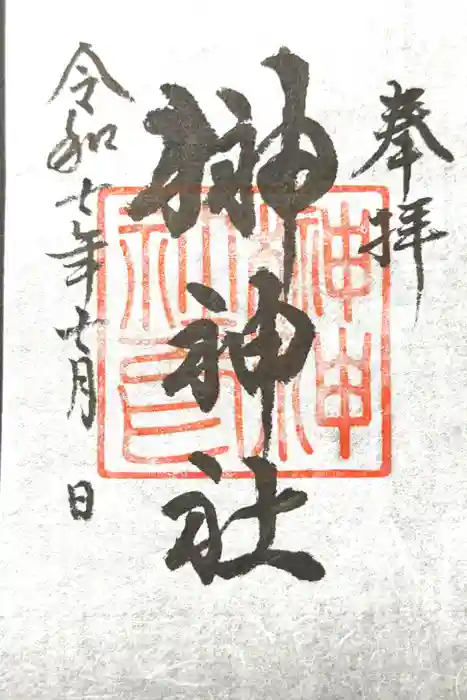 奉拝
榊神社
令和七年七月 日
榊神
社印